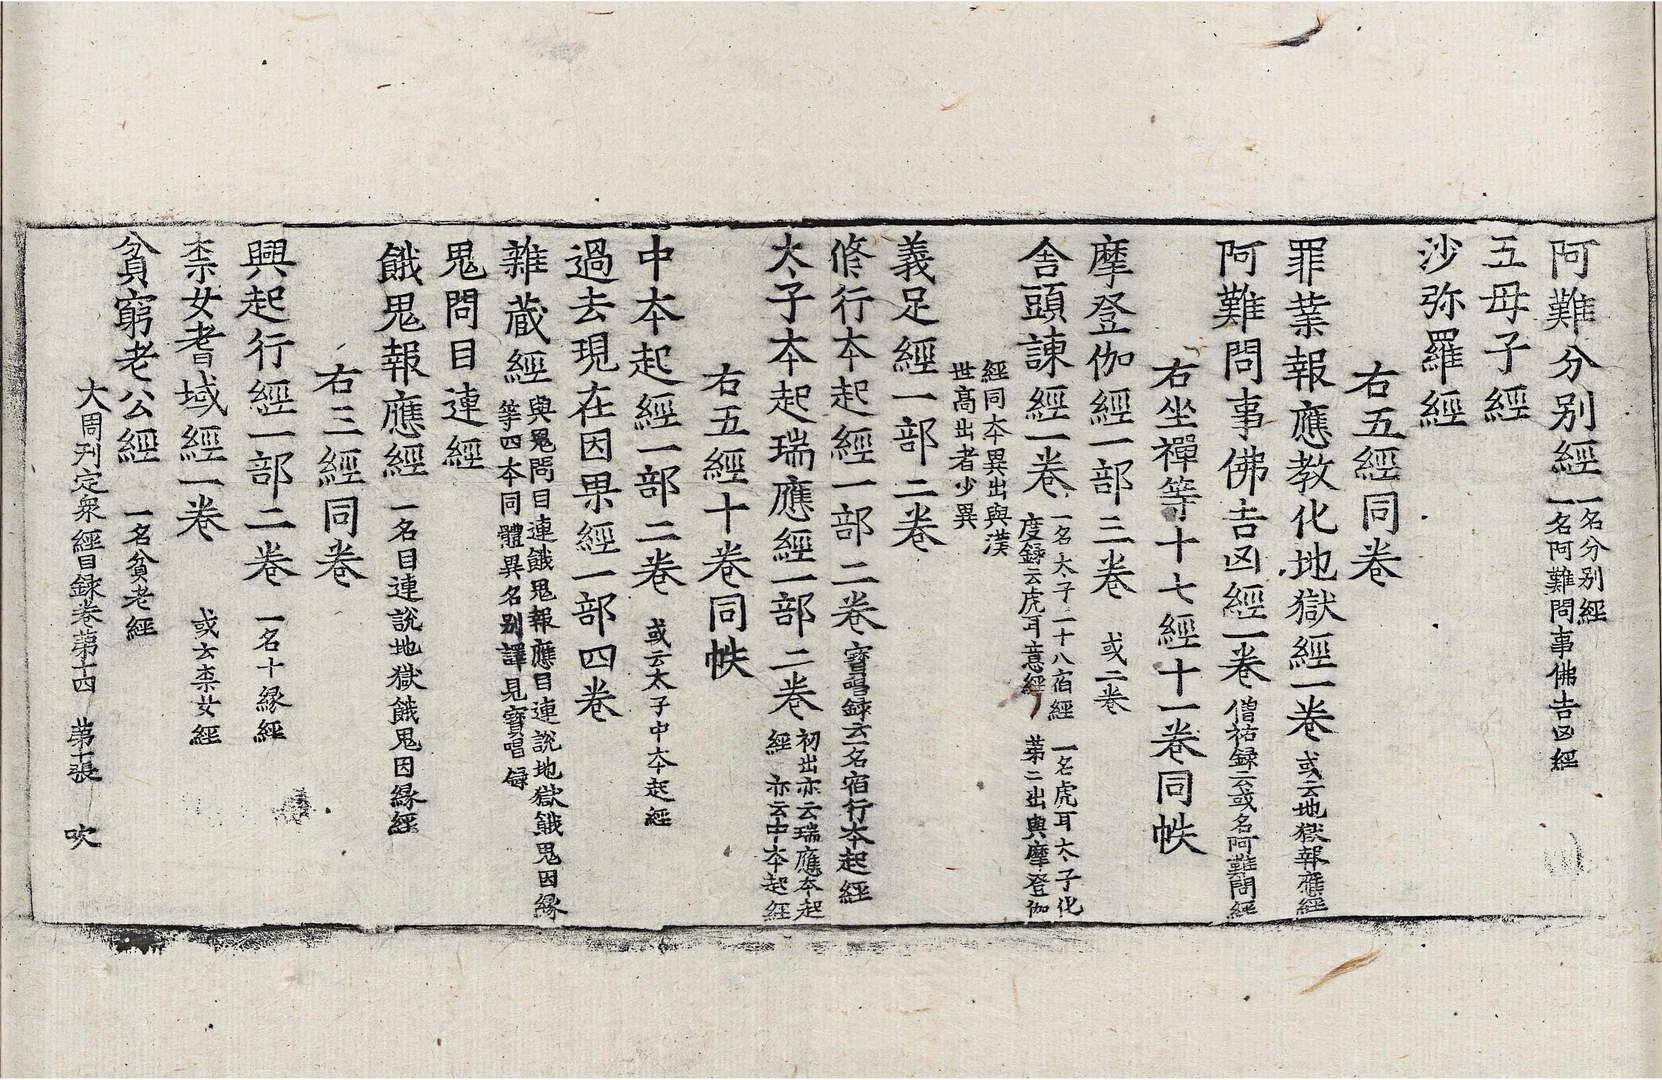 阿難分别經一名分别經一名阿難問事佛吉凶經
五母子經
沙弥羅經
右五經同卷
罪業報應教化地獄經一卷或云地獄報應經
阿難問事佛吉凶經一卷僧祐録云或名阿難問經
右坐禪等十七經十一卷同帙
摩登伽經一部三卷或二卷
舎頭諫經一卷一名太子二十八宿經一名虎耳太子化
度録云虎耳意經第二出與摩登伽
經同本異出與漢
世高出者少異
義足經一部二卷
修行本起經一部二卷寳唱録云一名宿行本起經
太子本起瑞應經一部二卷初出亦云瑞應本起
經亦云中本起經
右五經十卷同帙
中本起經一部二卷或云太子中本起經
過去現在因果經一部四卷
雜蔵經與鬼問目連餓鬼報應目連說地獄餓鬼因縁
等四本同體異名别譯見寳唱録
鬼問目連經
餓鬼報應經一名目連說地獄餓鬼因縁經
右三經同卷
興起行經一部二卷一名十縁經
柰女耆域經一卷或云柰女經
貧窮老公經一名貧老經
大周刋定衆經目録卷第十四 第十張 吹